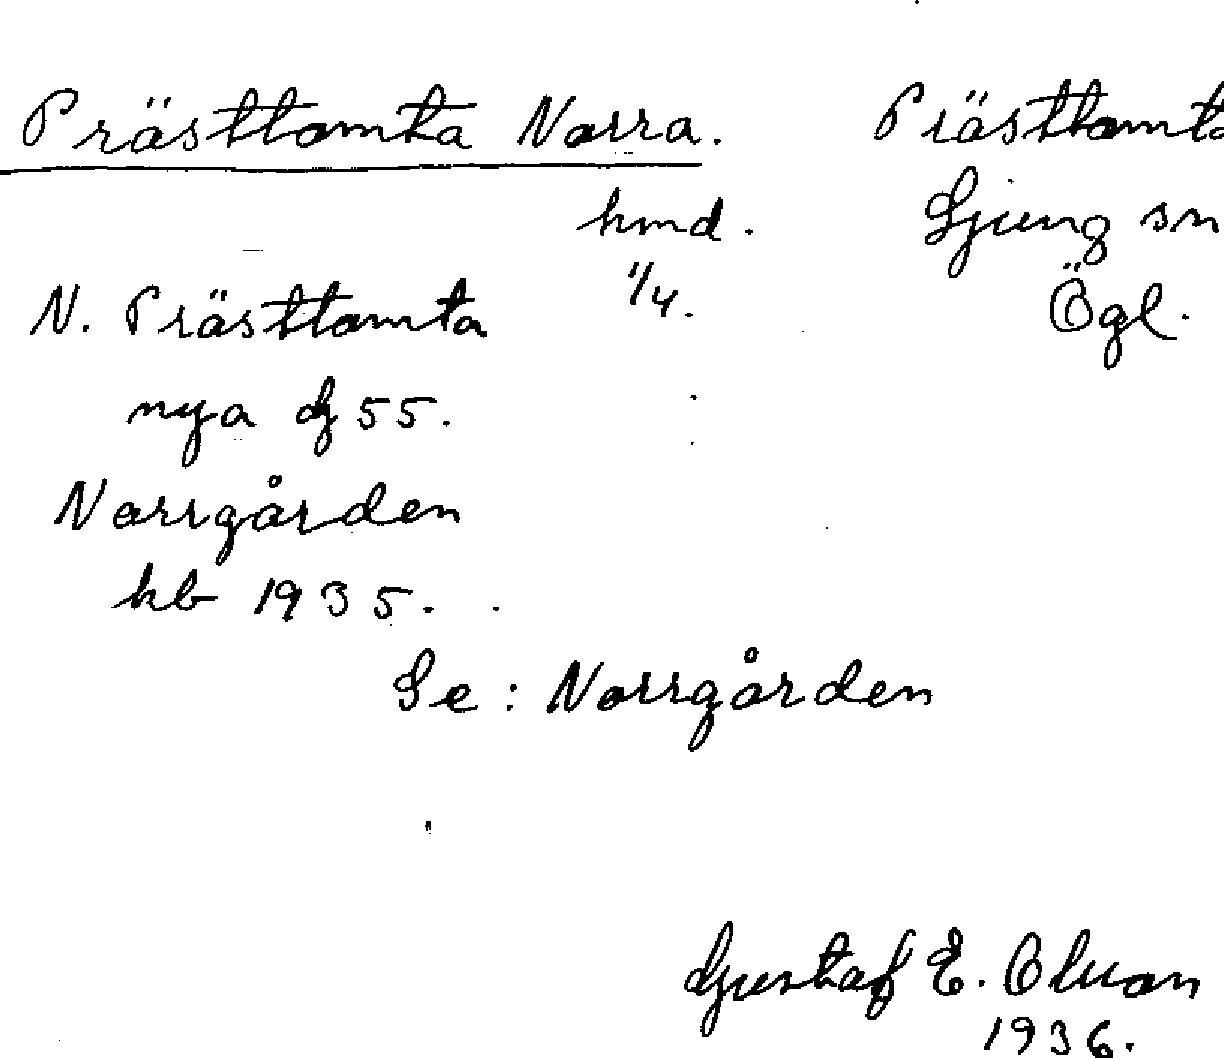 Prästtomta Norra. Prästtomta
hmd. Ljung sn
N. Prästtomta 1/4. Ögl.
nya dj 55.
Norrgården
hb 1935.
Se: Norrgården
Gustaf E.
1936.